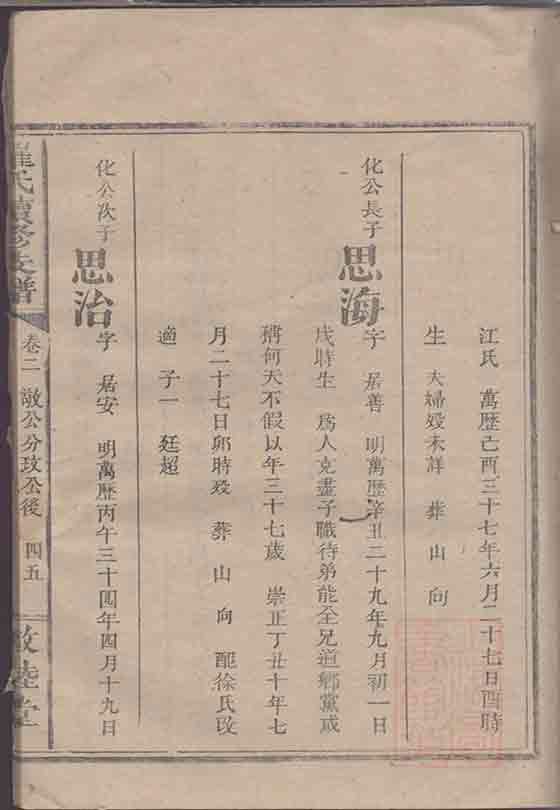 江氏　萬歷己酉三十七年六月二十七日酉時
生　夫婦歿未詳　葬　山　向
化公長子　思海　字　居善　明萬歷辛丑二十九年九月初一日
戌時生　爲人克盡子職待弟能全兄道鄉黨咸
稱何天不假以年三十七歲　崇正丁丑十年七
月二十七日卯時歿　葬　山　向　配徐氏改
適　子一　廷超
化公次子　思治　字　居安　明萬歷丙午三十四年四月十九日
氏續修支譜　卷二　敞公分玟公後　四五　敦睦堂